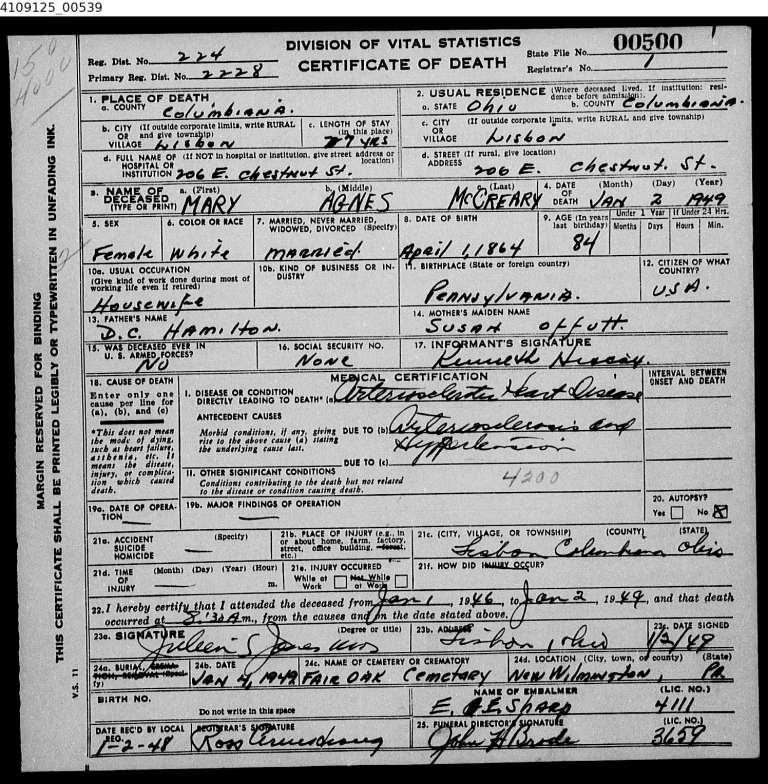 4109125_00539
150
4000
Reg. Dist. No. 224
Primary Reg. Dist. No. 2228
DIVISION OF VITAL STATISTICS
CERTIFICATE OF DEATH
State File No. 00500
Registrar's No. 1
MARGIN RESERVED FOR BINDING
THIS CERTIFICATE SHALL BE PRINTED LEGIBLY OR TYPEWRITTEN IN UNFADING INK.
V.S. 11
1. PLACE OF DEATH
a. COUNTY Columbiana.
2. USUAL RESIDENCE (Where deceased lived. If institution: residence before admission).
a. STATE Ohio b. COUNTY Columbiana.
b. CITY (If outside corporate limits, write RURAL
OR and give township)
VILLAGE Lisbon
c. LENGTH OF STAY
(in this place)
77 YRS
c. CITY (If outside corporate limits, write RURAL and give township)
OR
VILLAGE Lisbon
d. FULL NAME OF (If NOT in hospital or institution, give street address or location)
HOSPITAL OR
INSTITUTION 206 E. Chestnut St.
d. STREET (If rural, give location)
ADDRESS 206 E. Chestnut. St.
3. NAME OF DECEASED (TYPE OR PRINT)
a. (First) MARY
b. (Middle) AGNES
(Last) McCREARY
4. DATE OF DEATH (Month) (Day) (Year)
JAN 2 1949
5. SEX
Female
6. COLOR OR RACE
White
7. MARRIED, NEVER MARRIED, WIDOWED, DIVORCED (Specify)
MARRIED.
8. DATE OF BIRTH
April 1, 1864
9. AGE (In years last birthday)
84
Under 1 Year If Under 24 Hrs.
Months Days Hours Min.
10a. USUAL OCCUPATION
(Give kind of work done during most of working life even if retired)
Housewife
10b. KIND OF BUSINESS OR INDUSTRY
11. BIRTHPLACE (State or foreign country)
Pennsylvania.
12. CITIZEN OF WHAT COUNTRY?
U.S.A.
13. FATHER'S NAME
D.C. HAMILTON.
14. MOTHER'S MAIDEN NAME
SUSAN OFFUTT.
15. WAS DECEASED EVER IN U. S. ARMED FORCES?
No
16. SOCIAL SECURITY NO.
None
17. INFORMANT'S SIGNATURE
Kenneth
18. CAUSE OF DEATH
Enter only one cause per line for (a), (b), and (c)
*This does not mean the mode of dying, such as heart failure, asthenia, etc. It means the disease, injury, or complication which caused death.
MEDICAL CERTIFICATION
INTERVAL BETWEEN ONSET AND DEATH
I. DISEASE OR CONDITION
DIRECTLY LEADING TO DEATH* (a) Arteriosclerotic Heart Disease
ANTECEDENT CAUSES
Morbid conditions, if any, giving rise to the above cause (a) stating the underlying cause last.
DUE TO (b) Arteriosclerosis and
Hypertension
DUE TO (c)
II. OTHER SIGNIFICANT CONDITIONS
Conditions contributing to the death but not related to the disease or condition causing death.
4200
19a. DATE OF OPERATION
19b. MAJOR FINDINGS OF OPERATION
20. AUTOPSY?
Yes No X
21a. ACCIDENT (Specify)
SUICIDE
HOMICIDE
21b. PLACE OF INJURY (e.g., in or about home, farm, factory, street, office building, forest, etc.)
21c. (CITY, VILLAGE, OR TOWNSHIP) (COUNTY) (STATE)
Lisbon Columbiana Ohio
21d. TIME OF INJURY (Month) (Day) (Year) (Hour)
m.
21e. INJURY OCCURRED
While at Work Not While at Work
21f. HOW DID INJURY OCCUR?
22. I hereby certify that I attended the deceased from Jan 1, 1946, to Jan 2, 1949, and that death
occurred at 8:30 A.m., from the causes and on the date stated above.
23a. SIGNATURE (Degree or title)
23b. ADDRESS
Lisbon, Ohio
23c. DATE SIGNED
1/2/49
24a. BURIAL, CREMATION, REMOVAL (Specify)
24b. DATE
JAN 4, 1949
24c. NAME OF CEMETERY OR CREMATORY
FAIR OAK Cemetary
24d. LOCATION (City, town, or county) (State)
New Wilmington, PA
BIRTH NO.
Do not write in this space
NAME OF EMBALMER (LIC. NO.)
SHARP 4111
DATE REC'D BY LOCAL REG.
1-2-48
REGISTRAR'S SIGNATURE
Ross Armstrong
25. FUNERAL DIRECTOR'S SIGNATURE (LIC. NO.)
John H Brode 3659